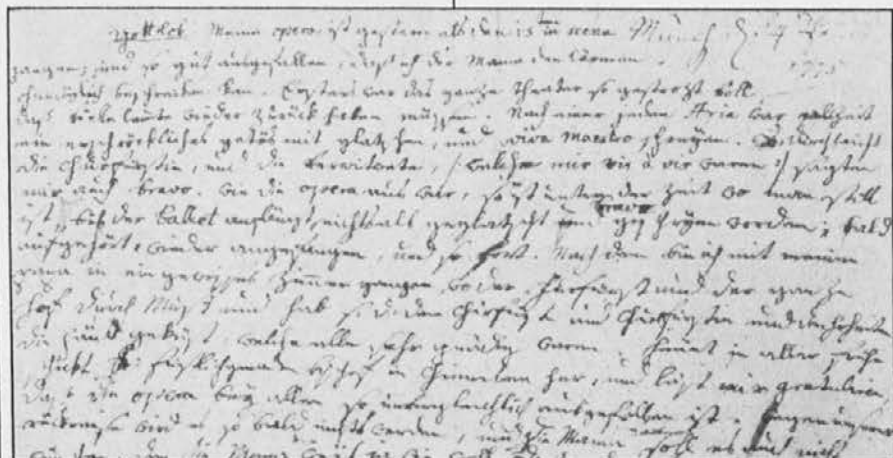 Gottlob! Meine opera ist gestern als den 13ten in scena
gangen; und so gut ausgefallen, daß ich der Mama den lärmen
ohnmöglich beschreiben kan. Erstens war das ganze theater so gestrozt voll,
daß vielle leute wieder zurück haben müssen. Nach einer jeden Aria war allzeit
ein erschröckliches getös mit glatschen, und viva maestro schreyen. S: durchlaucht
die Churfürstin, und die verwitwete, /: welche mir vis à vis waren :/ sagten
mir auch bravo. wie die opera aus war, so ist unter der zeit wo man still
ist, bis der ballet anfängt, nichts als geglatscht und bravo geschryen worden; bald
aufgehört, wieder angefangen, und so fort. Nach dem bin ich mit meinen
papa in ein gewisses zimmer gangen, wo der Churfürst und der ganze
hof durch muß und hab s: d: den Churfürst und Churfürstin und den hoheiten
die händ geküst, welche alle sehr gnädig waren. heunt in aller frühe
schickt S: fürstlichgnaden bischof in Chiemsee her, und läst mir gratulieren
daß die opera bey allen so unvergleichlich ausgefallen ist. wegen unserer
rückreise wird es so bald nichts werden, und die Mama soll es auch nicht
wünschen, den die Mama weis ja wie wohl